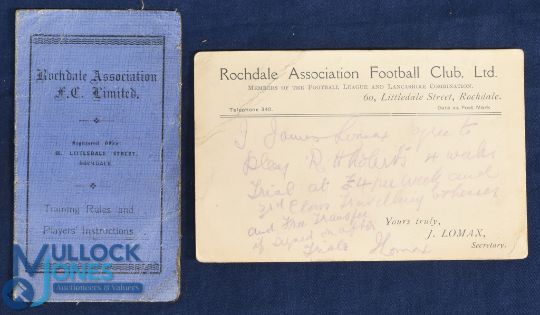 Rochdale Association
F.C. Limited.
Registered Office:
LITTLEDALE STREET,
ROCHDALE.
Training Rules and
Players' Instructions
MULLOCK
JONES
Auctioneers & Valuers
Rochdale Association Football Club, Ltd.
MEMBERS OF THE FOOTBALL LEAGUE AND LANCASHIRE COMBINATION.
60, Littledale Street, Rochdale.
Telephone 340.
Date as Post Mark
I James Lomax agree to
Play R H Roberts 4 weeks
Trial at £4 per week and
3rd Class Travelling Expenses
and Free Transfer
if signed on after
Trials
Yours truly,
J. LOMAX,
Secretary.
JLomax